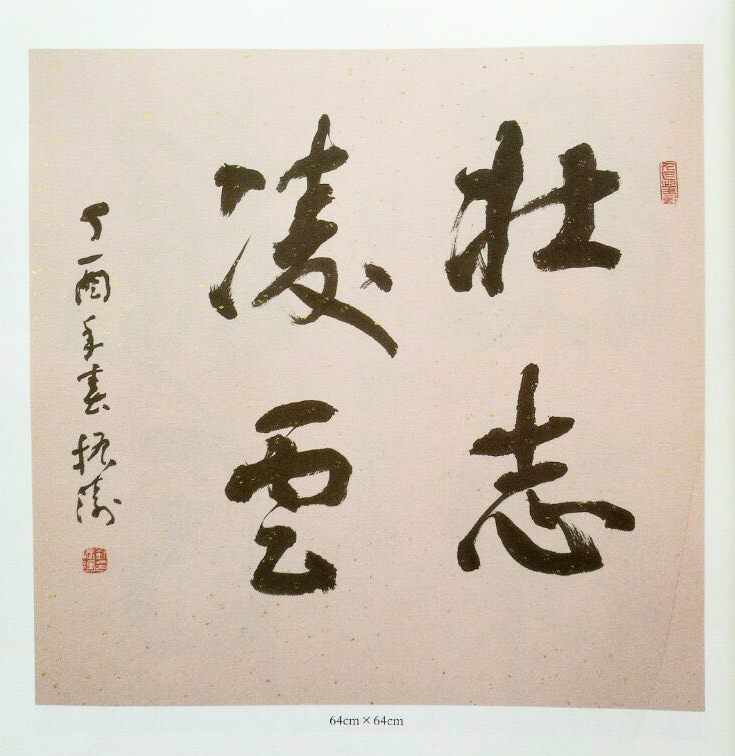 壮志
凌雲
丁酉年春振涛
64cm×64cm